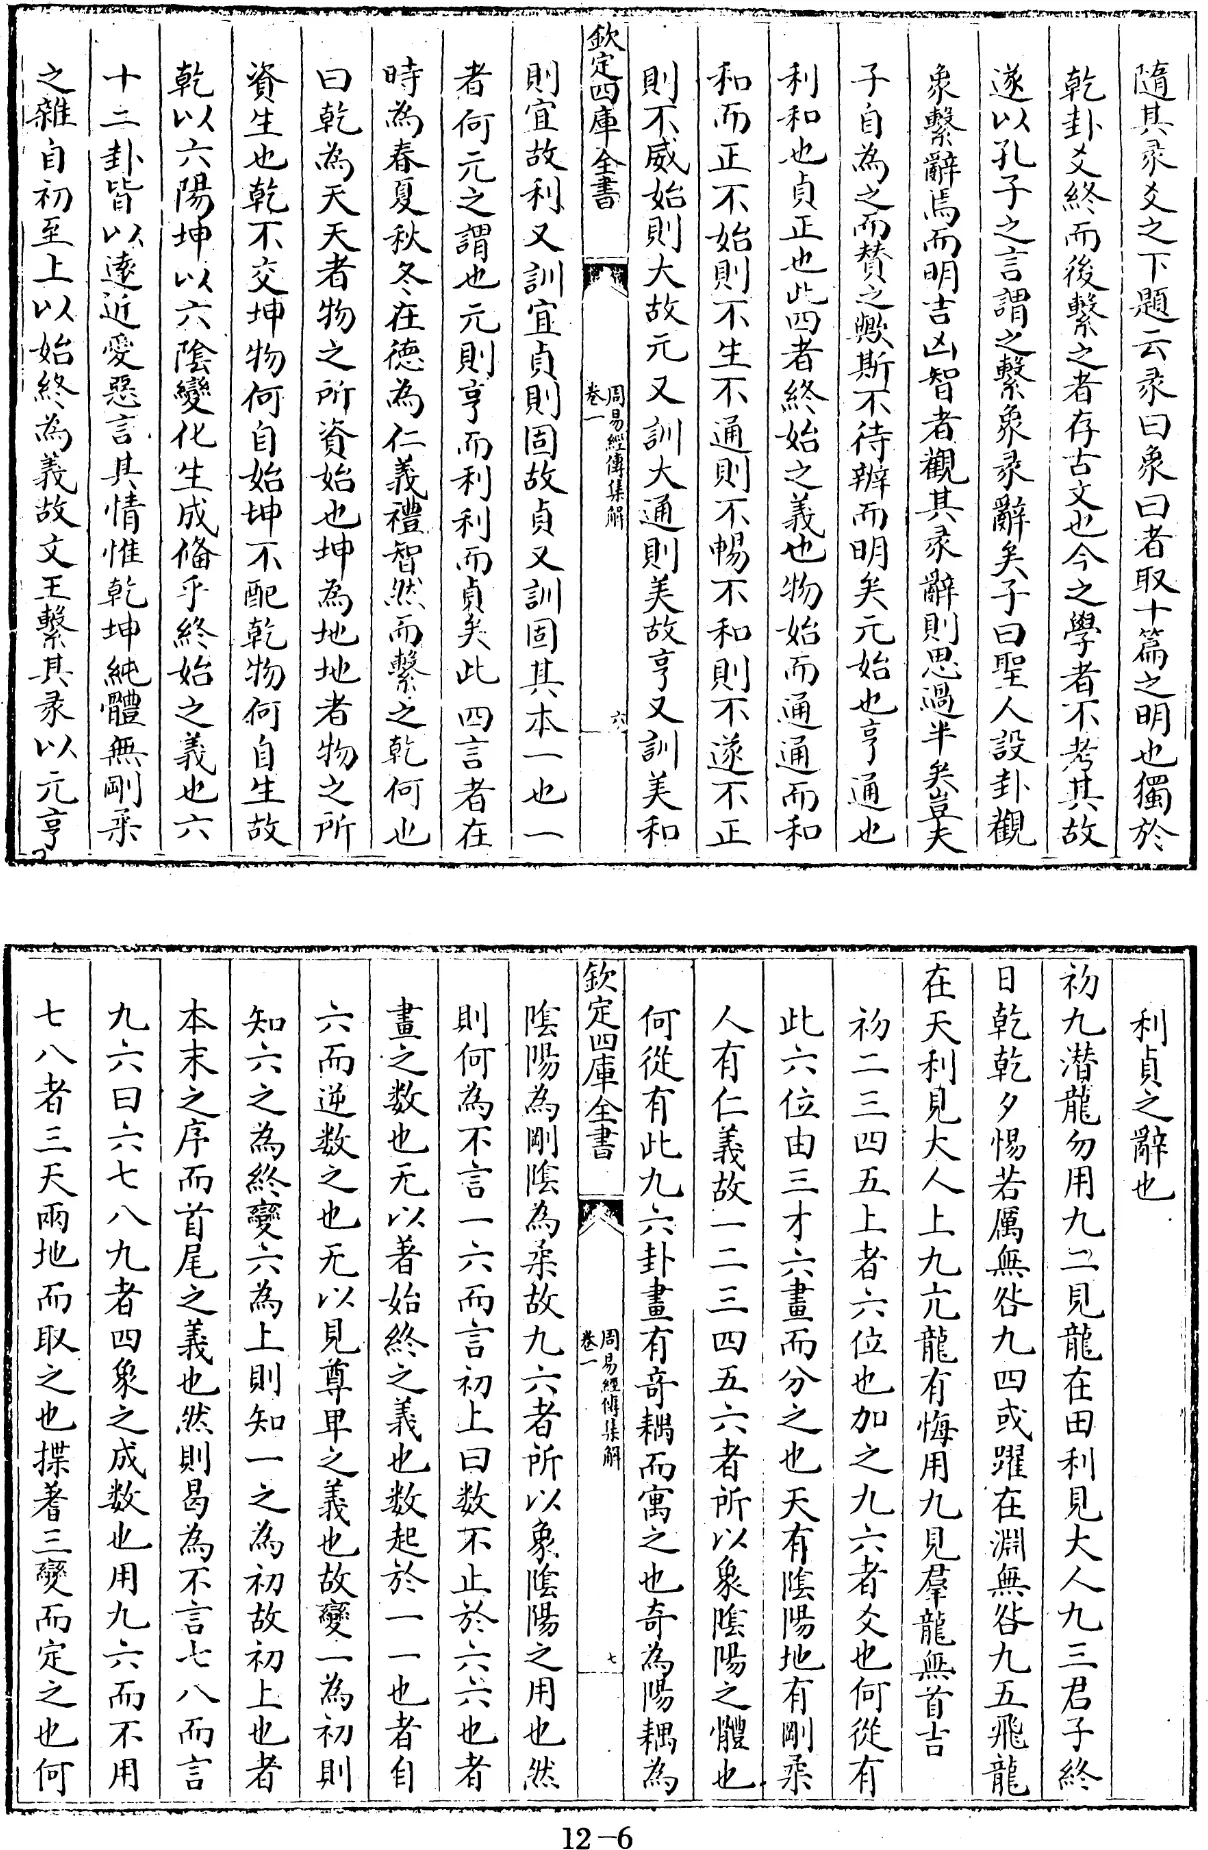 隨其彖爻之下題云彖曰象曰者取十篇之明也獨於
乾卦爻終而後繫之者存古文也今之學者不考其故
遂以孔子之言謂之繫象彖辭矣子曰聖人設卦觀
象繫辭焉而明吉凶智者觀其彖辭則思過半矣豈夫
子自為之而賛之歟斯不待辨而明矣元始也亨通也
利和也貞正也此四者終始之義也物始而通通而和
和而正不始則不生不通則不暢不和則不遂不正
則不威始則大故元又訓大通則美故亨又訓美和
欽定四庫全書
周易經傳集解
卷一
六
則宜故利又訓宜貞則固故貞又訓固其本一也一
者何元之謂也元則亨而利利而貞矣此四言者在
時為春夏秋冬在德為仁義禮智然而繫之乾何也
曰乾為天天者物之所資始也坤為地地者物之所
資生也乾不交坤物何自始坤不配乾物何自生故
乾以六陽坤以六陰變化生成偹乎終始之義也六
十二卦皆以遠近愛惡言其情惟乾坤純體無剛柔
之雜自初至上以始終為義故文王繫其彖以元亨
利貞之辭也
初九潛龍勿用九二見龍在田利見大人九三君子終
日乾乾夕惕若厲無咎九四或躍在淵無咎九五飛龍
在天利見大人上九亢龍有悔用九見羣龍無首吉
初二三四五上者六位也加之九六者爻也何從有
此六位由三才六畫而分之也天有陰陽地有剛柔
人有仁義故一二三四五六者所以象陰陽之體也
何從有此九六卦畫有奇耦而寓之也奇為陽耦為
欽定四庫全書
周易經傳集解
卷一
七
陰陽為剛陰為柔故九六者所以象陰陽之用也然
則何為不言一六而言初上曰數不止於六六也者
畫之数也无以著始終之義也数起於一一也者自
六而逆數之也无以見尊卑之義也故變一為初則
知六之為終變六為上則知一之為初故初上也者
本末之序而首尾之義也然則曷為不言七八而言
九六曰六七八九者四象之成数也用九六而不用
七八者三天兩地而取之也揲蓍三變而定之也何
12-6